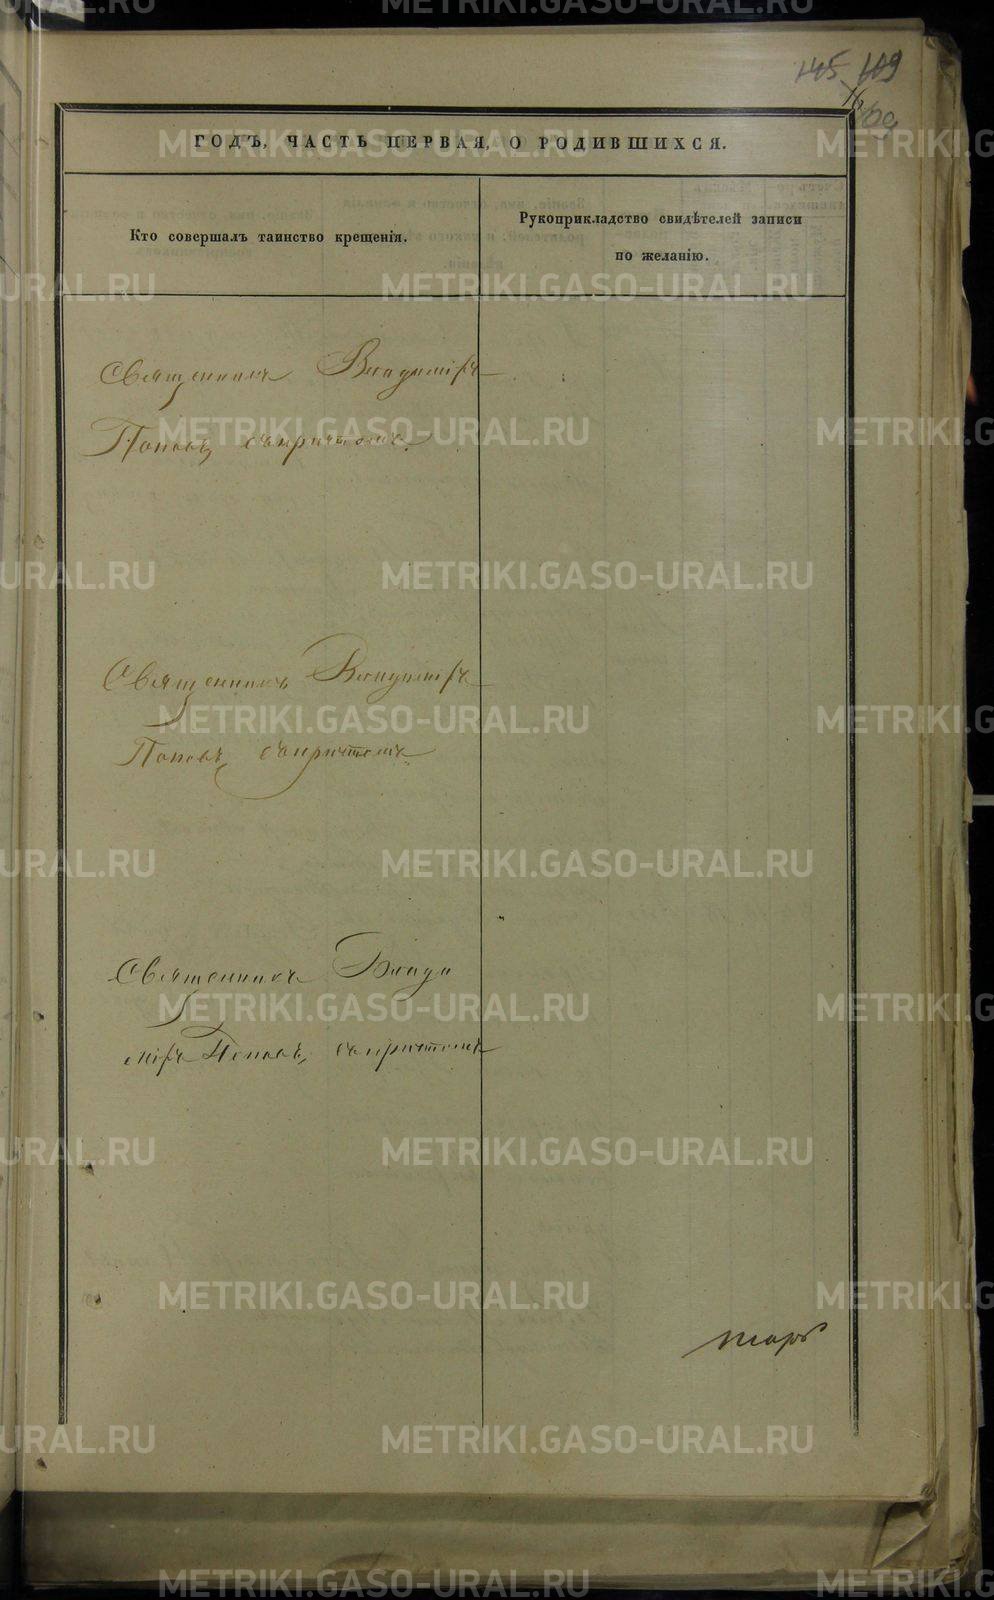 145 109
109
ГОДЪ, ЧАСТЬ ПЕРВАЯ, О РОДИВШИХСЯ.
Кто совершалъ таинство крещенія.
Рукоприкладство свидѣтелей записи
по желанію.
Священникъ Владиміръ
Поповъ, съ причтомъ.
Священникъ Владиміръ
Поповъ, съ причтомъ.
Священникъ Влади
міръ Поповъ, съ причтомъ
METRIKI.GASO-URAL.RU